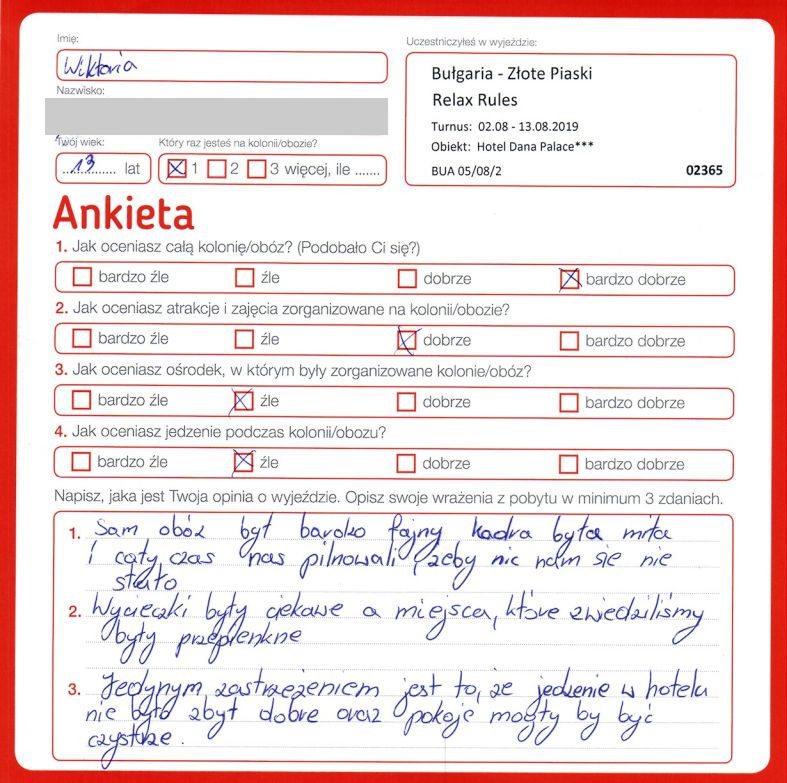 Imię:
Wiktoria
Nazwisko:
Twój wiek:
13 lat
Który raz jesteś na kolonii/obozie?
1 2 3 więcej, ile .......
Uczestniczyłeś w wyjeździe:
Bułgaria - Złote Piaski
Relax Rules
Turnus: 02.08 - 13.08.2019
Obiekt: Hotel Dana Palace***
BUA 05/08/2 02365
Ankieta
1. Jak oceniasz całą kolonię/obóz? (Podobało Ci się?)
bardzo źle źle dobrze bardzo dobrze
2. Jak oceniasz atrakcje i zajęcia zorganizowane na kolonii/obozie?
bardzo źle źle dobrze bardzo dobrze
3. Jak oceniasz ośrodek, w którym były zorganizowane kolonie/obóz?
bardzo źle źle dobrze bardzo dobrze
4. Jak oceniasz jedzenie podczas kolonii/obozu?
bardzo źle źle dobrze bardzo dobrze
Napisz, jaka jest Twoja opinia o wyjeździe. Opisz swoje wrażenia z pobytu w minimum 3 zdaniach.
1. Sam obóz był bardzo fajny kadra była miła
i cały czas nas pilnowali, żeby nic nam się nie
stało
2. Wycieczki były ciekawe a miejsca, które zwiedziliśmy
były przepienkne
3. Jedynym zastrzeżeniem jest to, że jedzenie w hotelu
nie było zbyt dobre oraz pokoje mogły by być
czystrze.